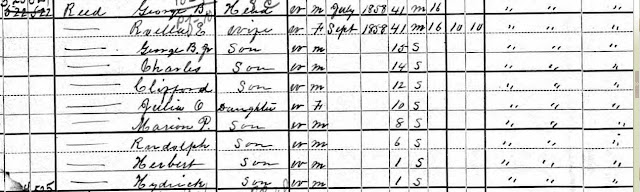 Reed George B. Head W m July 1858 41 m 16 " " "
Wife W F Sept 1858 41 M 16 10 10 " " "
George B. Jr Son W m 15 S " " "
Charles Son W m 14 S " " "
Clifford Son W m 12 S " " "
Julia O Daughter W F 10 S " " "
Marion P. Son W m 8 S " " "
Rudolph Son W m 6 S " " "
Herbert Son W m 1 S " " "
Hydrick Son W m 1 S " " "